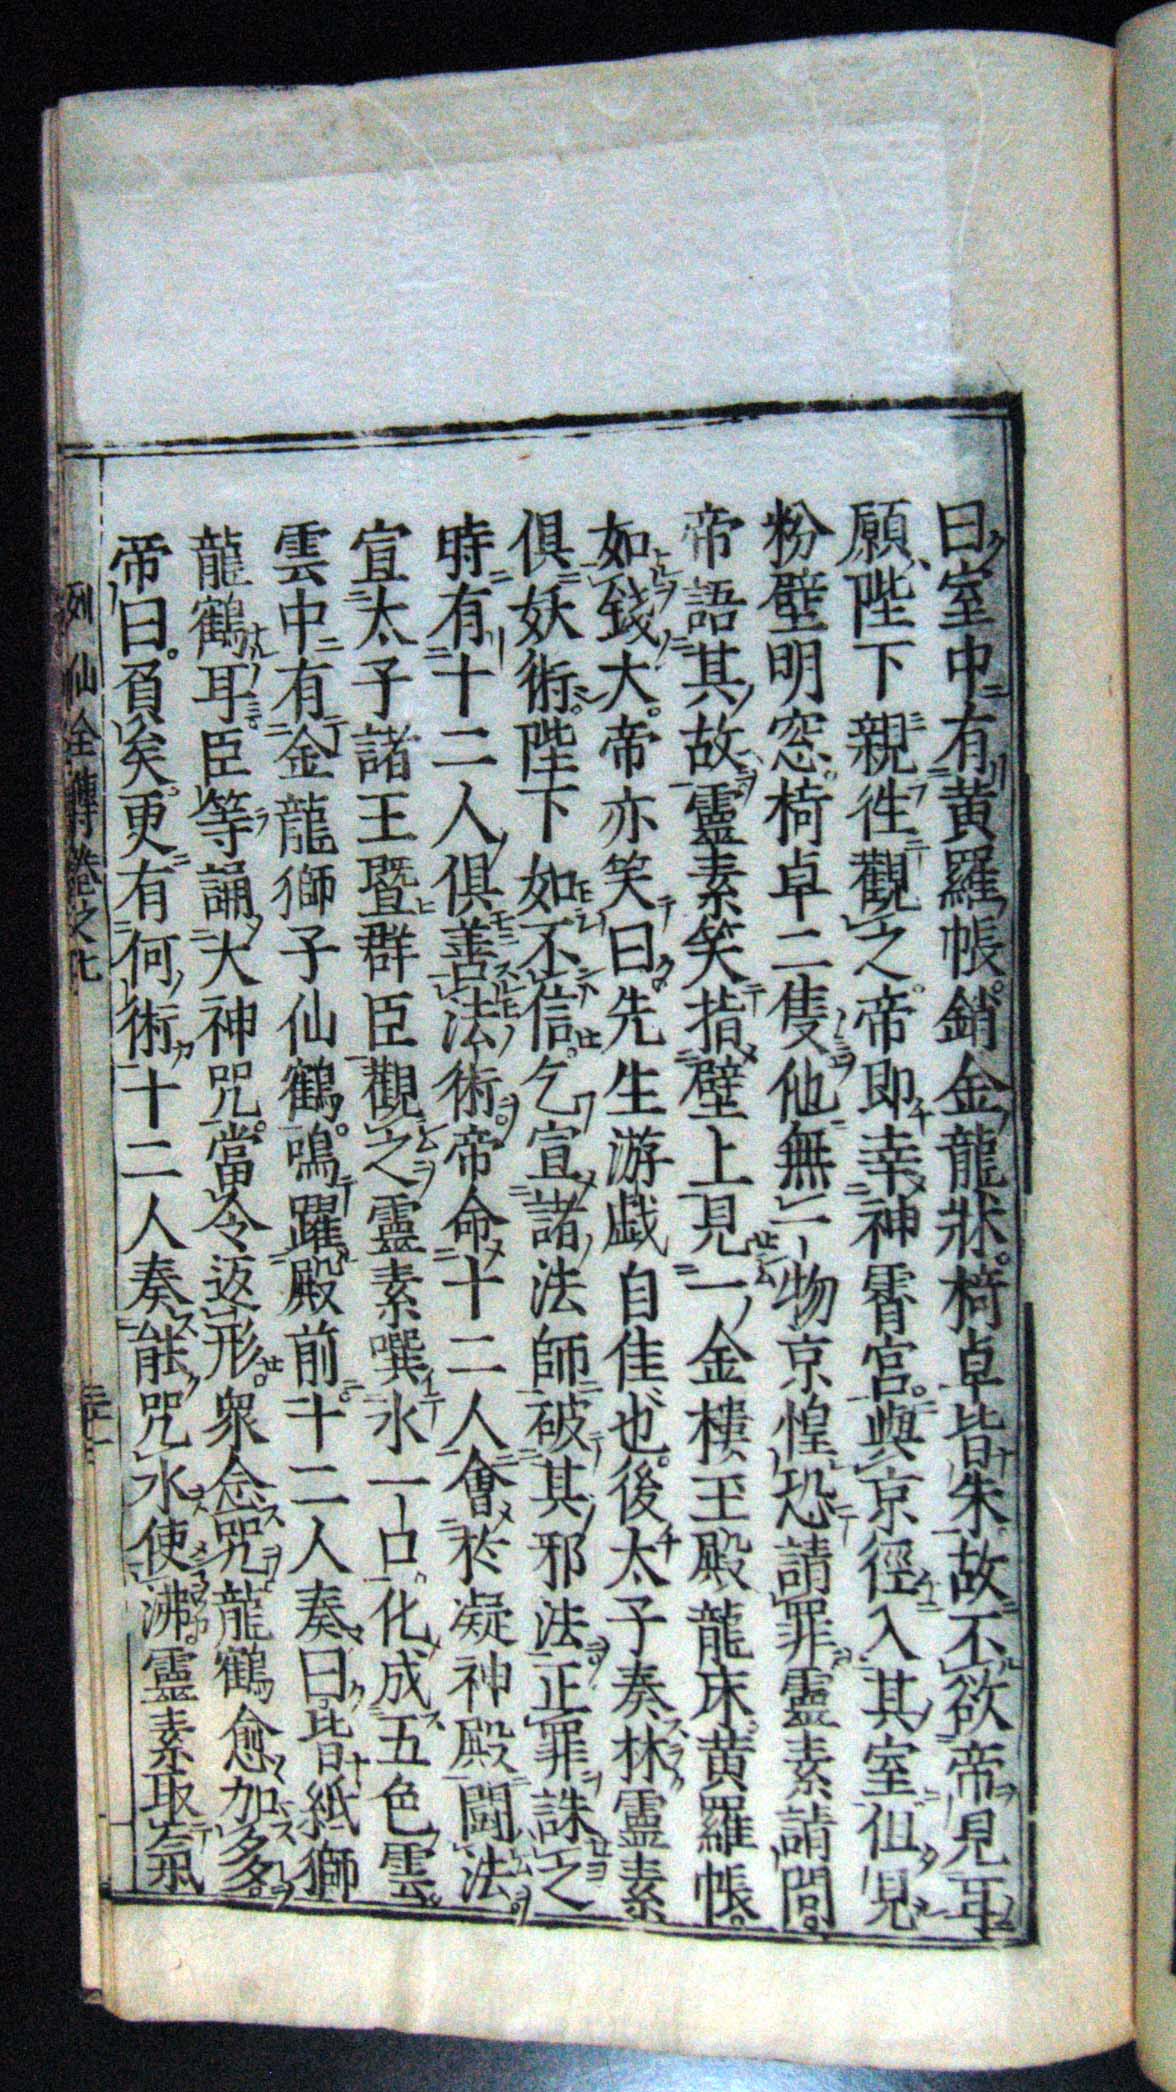 曰室中有黄羅帳銷金龍牀椅卓皆朱故不欲帝見耳
願陛下親徃觀之帝即幸神霄宮與京徑入其室但見
粉壁明窓椅卓二隻他無一物京惶恐請罪靈素請問
帝語其故靈素笑指壁上見一金樓玉殿龍床黄羅帳
如錢大帝亦笑曰先生游戯自佳也後太子奏林靈素
俱妖術陛下如不信乞宣諸法師破其邪法正罪誅之
時有十二人俱善法術帝命十二人會於凝神殿鬪法
宣太子諸王暨群臣觀之靈素噀水一口化成五色雲
雲中有金龍獅子仙鶴鳴躍殿前十二人奏曰皆紙獅
龍鶴耳臣等誦大神咒當令返形衆念咒龍鶴愈加多
帝曰負矣更有何術十二人奏能咒水使沸靈素取氣
列仙全傳卷之七